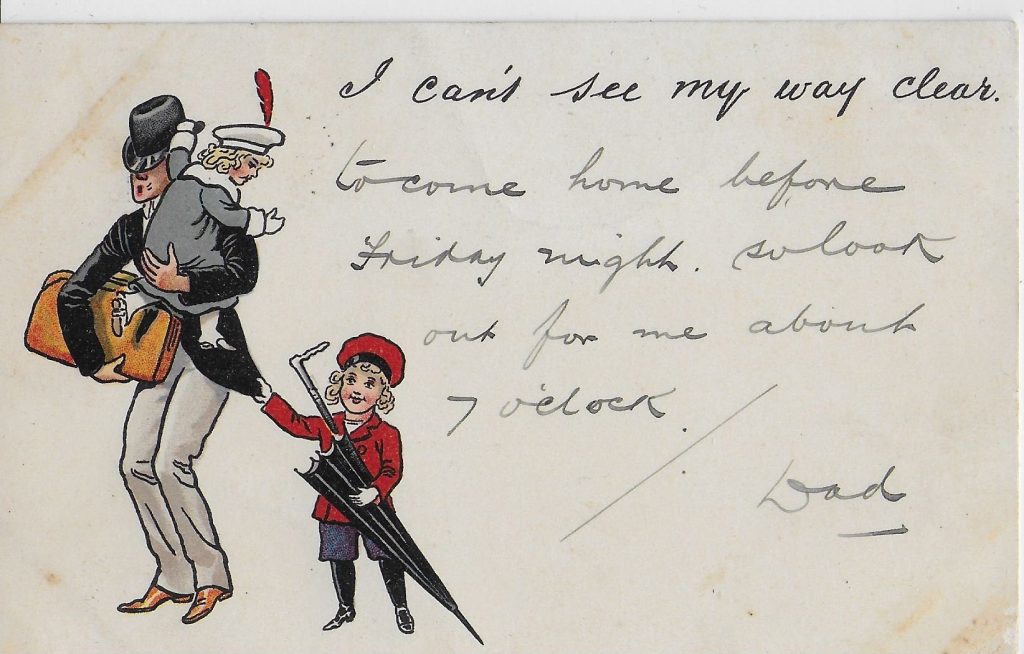 I can't see my way clear.
to come home before
Friday night. so look
out for me about
7 o'clock.
Dad